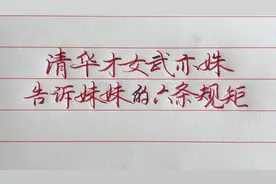 清华才女武亦姝
告诉妹妹的六条规矩